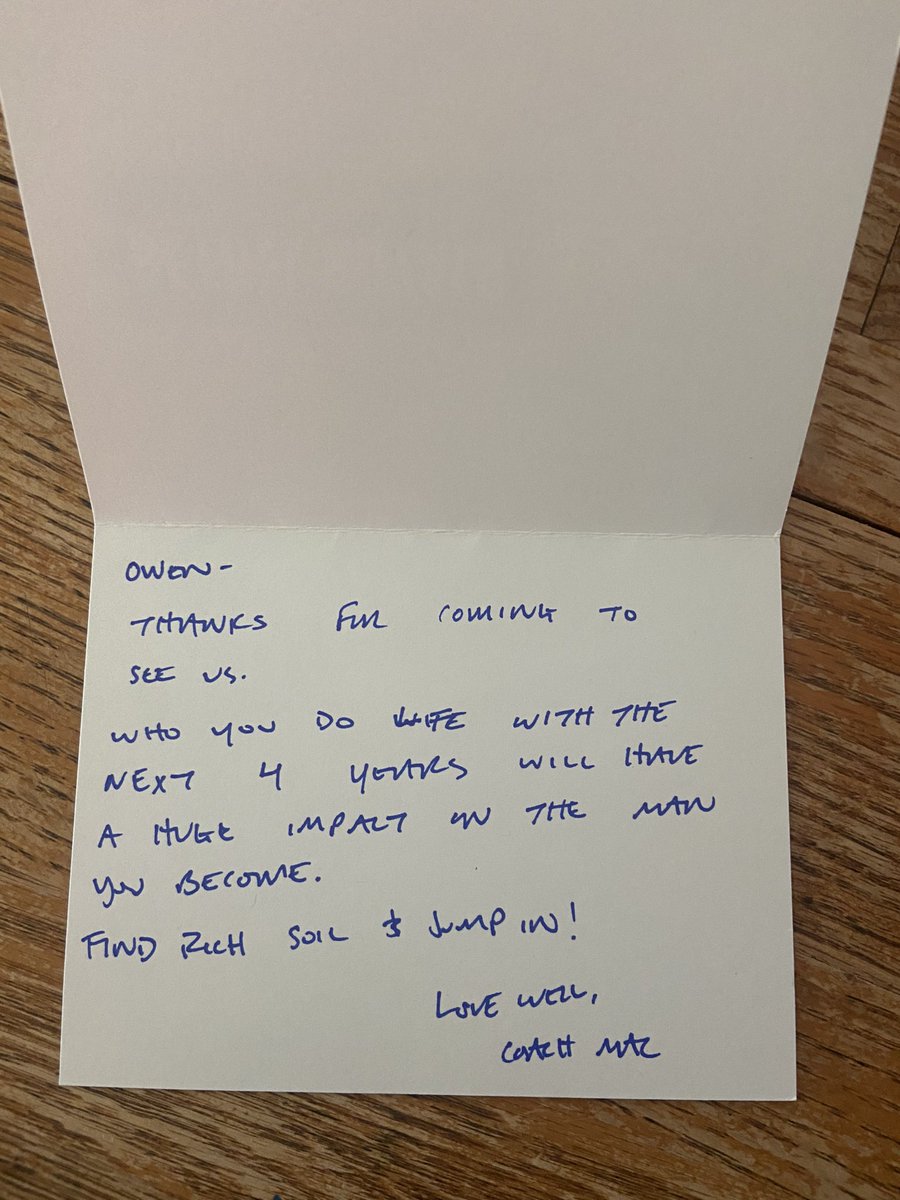 OWEN-
THANKS FOR COMING TO
SEE US.
WHO YOU DO LIFE WITH THE
NEXT 4 YEARS WILL HAVE
A HUGE IMPACT ON THE MAN
YOU BECOME.
FIND RICH SOIL & JUMP IN!
LOVE WELL,
COACH MAC